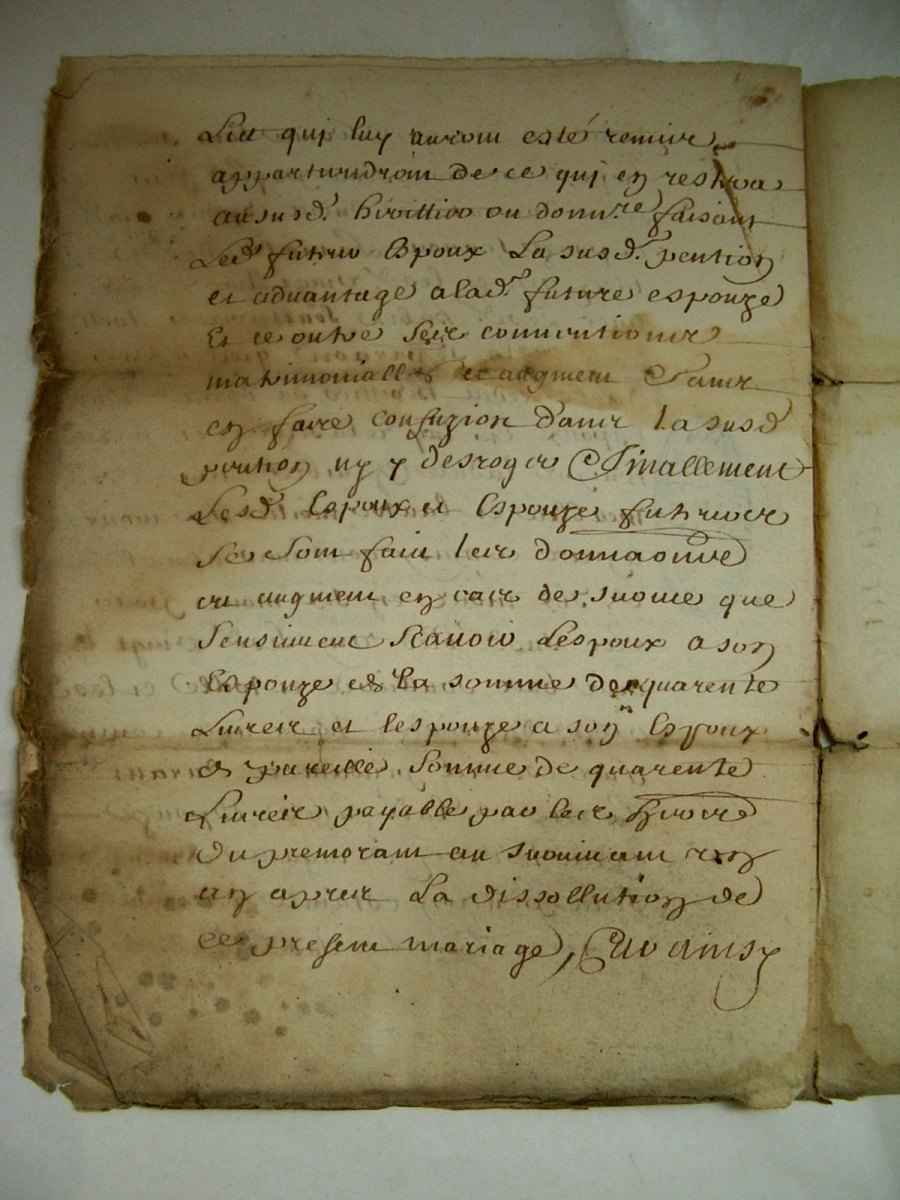 Lict quj luy auront esté remis
appartiendront de ce quj en restera
au susd. heritier ou donn.re faisant
Led. futur Espoux La susd. pention
et aduantage a lad. future espouze
Et ce outre ses conuentions
matrimonialles et augment Sans
en faire confuzion dans la susd
pention ny y desroger Finallement
Lesd Espoux et Espouze futeurs
Se Sont faict les donnaons
et augment en cas de suruie que
sensuiuent Scauoir Lespoux a son
Espouze de la somme de quarente
Liures et lespouze a son Espoux
de pareille Somme de quarente
Liures payable par les hers
du premorant au suruiuant
an apres La dissollution de
ce present mariage,